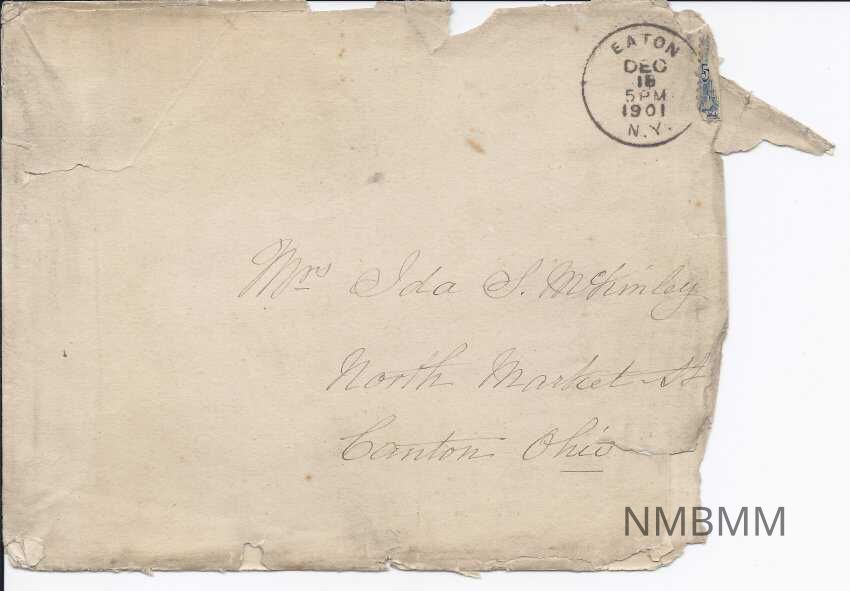 EATON
DEC
5 PM
1901
N.Y.
5
Mrs Ida S. McKinley
North Market St
Canton Ohio
NMBMM